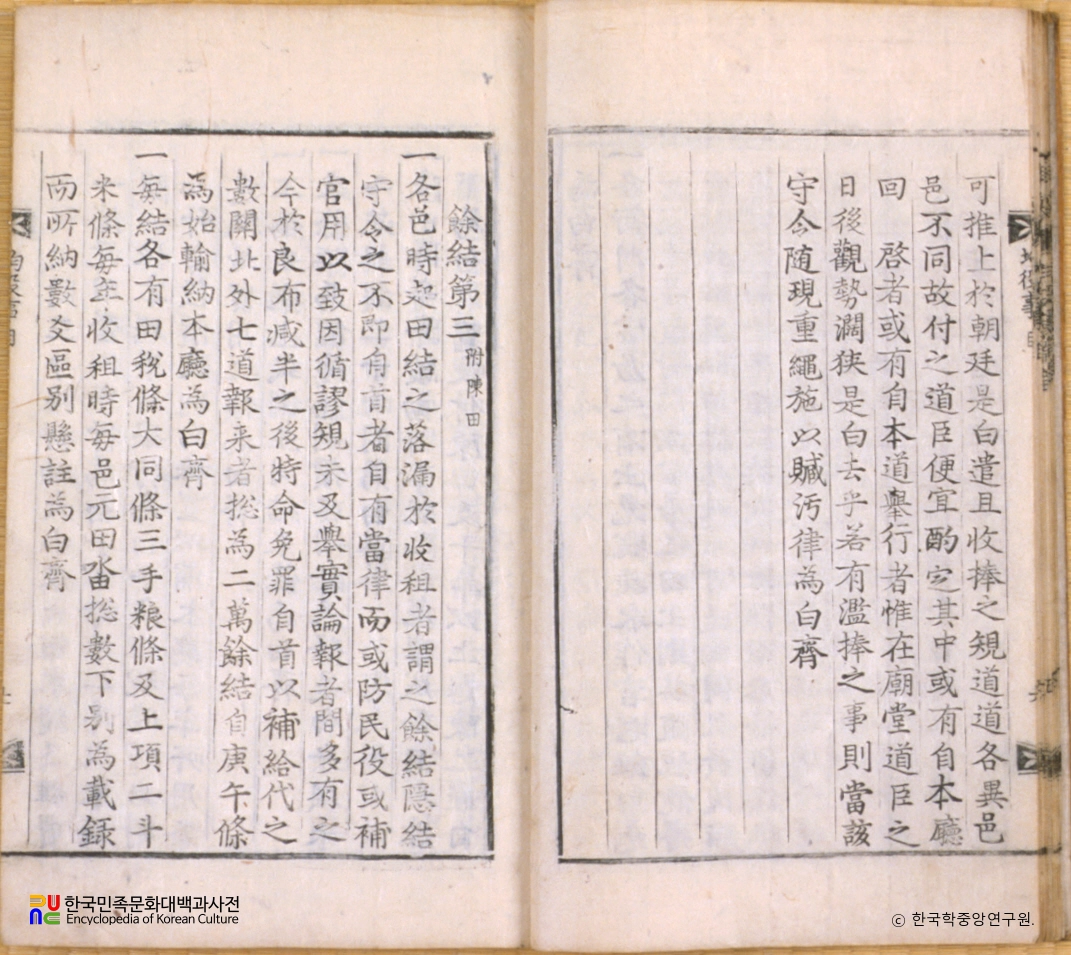 可推上於朝廷是白遣且收捧之規道道各異邑
邑不同故付之道臣便宜酌定其中或有自本廳
回 啓者或有自本道擧行者惟在廟堂道臣之
日後觀勢濶狹是白去乎若有濫捧之事則當該
守令随現重繩施以贓汚律為白齊
餘結第三 附陳田
一各邑時起田結之落漏於收租者謂之餘結隱結
守令之不即自首者自有當律而或防民役或補
官用以致因循謬規未及擧實論報者間多有之
今於良布减半之後特命免罪自首以補給代之
數關北外七道報来者捴為二萬餘結自庚午條
為始輸納本廳為白齊
一每結各有田稅條大同條三手粮條及上項二斗
米條每年收租時每邑元田畓捴數下别為載錄
而所納數爻區别懸註為白齊
한국민족문화대백과사전
Encyclopedia of Korean Culture
© 한국학중앙연구원.